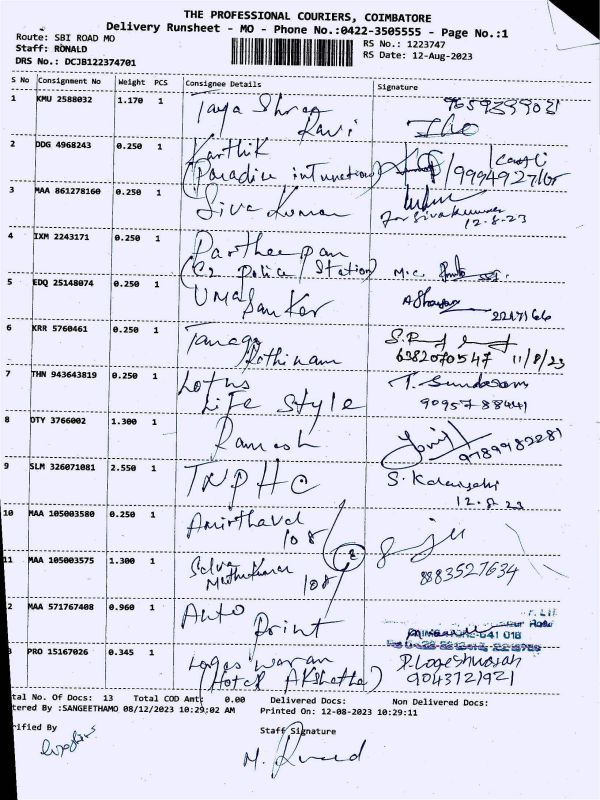 THE PROFESSIONAL COURIERS, COIMBATORE
Delivery Runsheet - MO - Phone No.:0422-3505555 - Page No.:1
Route: SBI ROAD MO
RS No.: 1223747
Staff: RONALD
RS Date: 12-Aug-2023
DRS No.: DCJB122374701
S No Consignment No Weight PCS Consignee Details Signature
1 KMU 2588032 1.170 1 Ravi
2 DDG 4968243 0.250 1 Karthik
(Paradice
3 MAA 861278160 0.250 1 Siva Kumar for Sivakumar
12.8.23
4 IXM 2243171 0.250 1 Partheepan
(C2 Police Station) M.C.
5 EDQ 25148074 0.250 1 UMA
Sanker 2217166
6 KRR 5760461 0.250 1 Rathinam 6382070547 11/8/23
7 THN 943643819 0.250 1 Lotus
Life Style T. Sundaram
9095788441
8 OTY 3766002 1.300 1 Ramesh 9789982281
9 SLM 326071081 2.550 1 TNPHC S.
12.8.23
10 MAA 105003580 0.250 1 Amirthavel
108
11 MAA 105003575 1.300 1 Selva
Muthukumar 108 8883527634
2 MAA 571767408 0.960 1 Auto
Print
641 018
PRO 15167026 0.345 1 Logeswaran
(Hotel Akshatha) P. Logeshwaran
9043721921
tal No. Of Docs: 13 Total COD Amt: 0.00 Delivered Docs: Non Delivered Docs:
tered By :SANGEETHAMO 08/12/2023 10:29:02 AM Printed On: 12-08-2023 10:29:11
rified By Staff Signature